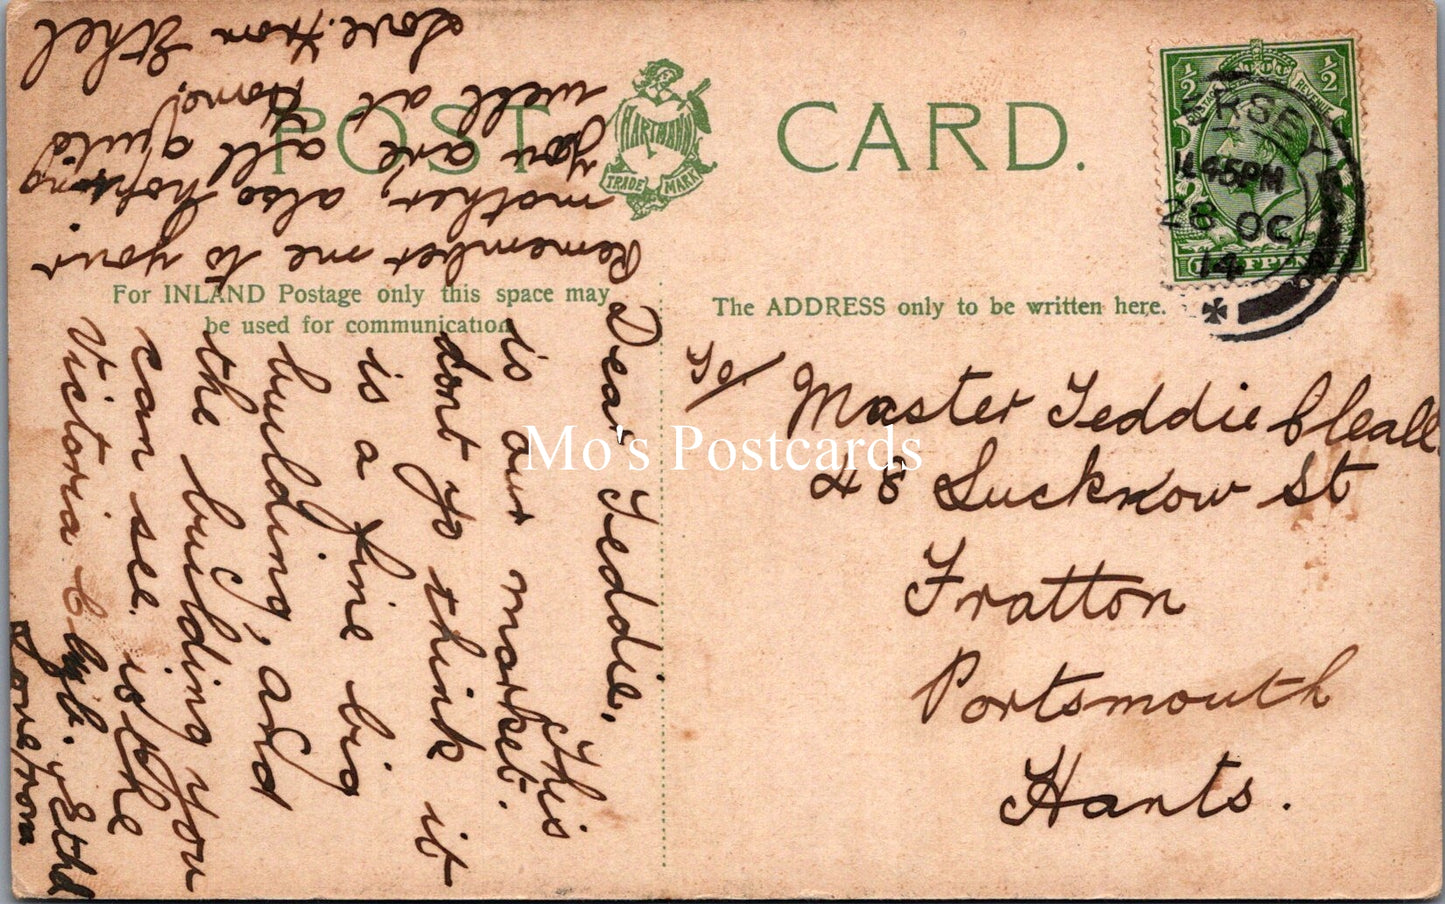 POST CARD.
HARTMANN
TRADE MARK
For INLAND Postage only this space may
be used for communication
The ADDRESS only to be written here.
½ ½
POSTAGE REVENUE
HALFPENNY
ERSEY
11.45PM
28 OC
14
To/
Master Teddie Cleall
48 Lucknow St
Fratton
Portsmouth
Hants.
Dear Teddie, This
is our market.
dont yo think it
is a fine big
building, and
the building you
can see is the
Victoria Club.
Love from
Ethel
Remember me to your
mother, also hoping
you are all quite
well at Home!
Love from Ethel
Mo's Postcards